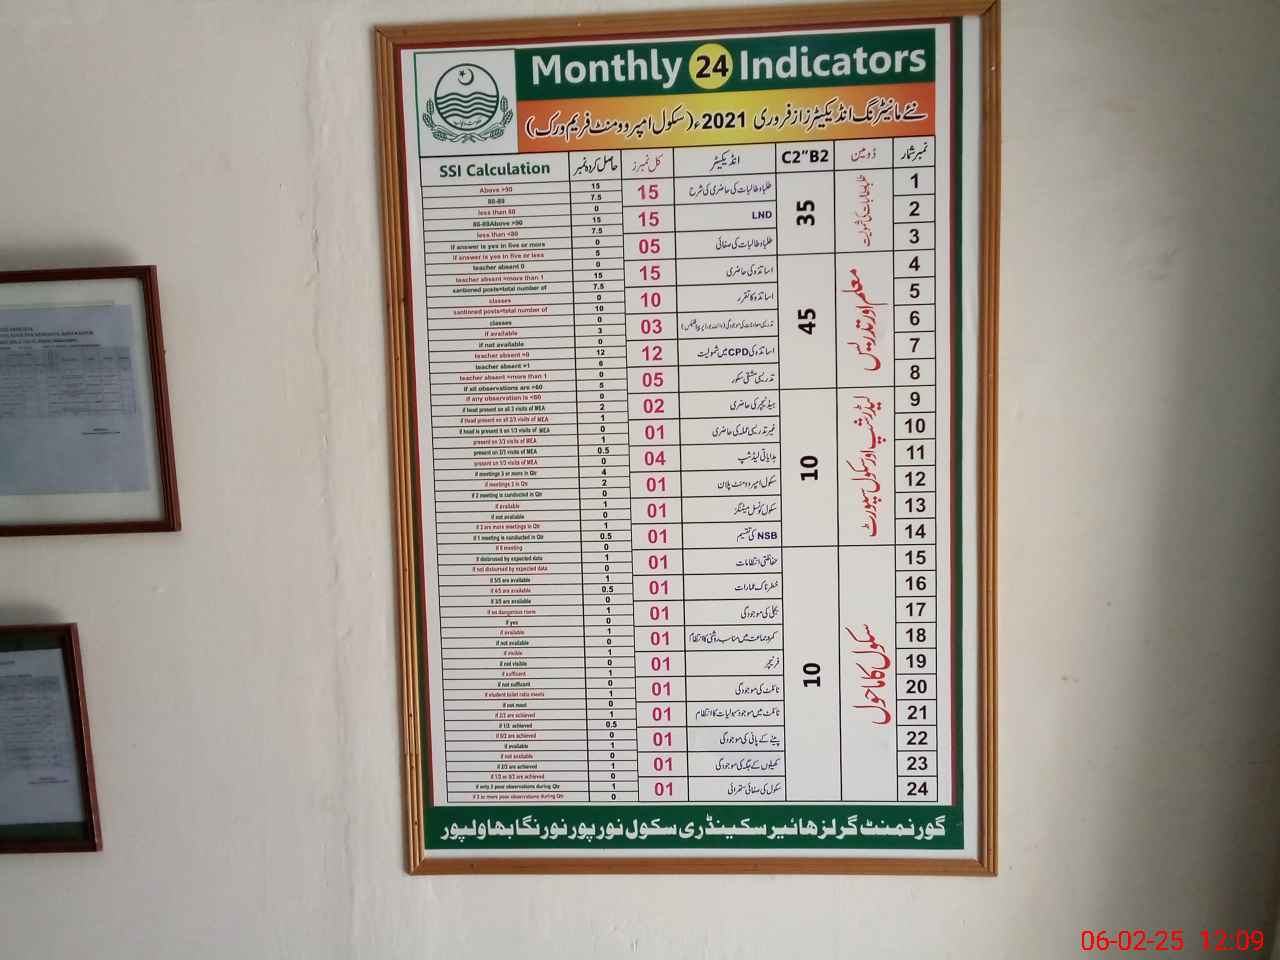 Monthly 24 Indicators
نئے مانیٹرنگ انڈیکیٹرز از فروری 2021ء (سکول امپروومنٹ فریم ورک)
نمبر شمار ڈومین C2"B2 انڈیکیٹر کل نمبرز حاصل کردہ نمبر SSI Calculation
طلباء طالبات کی شمولیت
35
معلم اور تدریس
45
لیڈرشپ اور سکول سپورٹ
10
سکول کا ماحول
10
1 طلباء و طالبات کی حاضری کی شرح 15
2 LND 15
3 طلباء و طالبات کی صفائی 05
4 اساتذہ کی حاضری 15
5 اساتذہ کا تقرر 10
6 03
7 اساتذہ کی CPD میں شمولیت 12
8 تدریسی مشقی سکور 05
9 ہیڈ ٹیچر کی حاضری 02
10 غیر تدریسی عملہ کی حاضری 01
11 ہدایاتی لیڈشپ 04
12 سکول امپروومنٹ پلان 01
13 سکول کونسل میٹنگز 01
14 NSB کی تقسیم 01
15 حفاظتی انتظامات 01
16 خطرناک عمارات 01
17 بجلی کی موجودگی 01
18 کمرہ جماعت میں مناسب روشنی کا انتظام 01
19 فرنیچر 01
20 ٹائلٹ کی موجودگی 01
21 ٹائلٹ میں موجود سہولیات کا انتظام 01
22 پینے کے پانی کی موجودگی 01
23 کھیلوں کے جگہ کی موجودگی 01
24 سکول کی صفائی ستھرائی 01
Above >90 15
80-89 7.5
less than 80 0
80-89Above >90 15
less than <80 7.5
if answer is yes in five or more 0
if answer is yes in five or less 5
teacher absent 0 0
teacher absent=more than 1 15
santioned posts=total number of 7.5
classes 0
santioned posts=total number of 10
classes 0
if available 3
if not available 0
teacher absent =0 12
teacher absent =1 6
teacher absent =more than 1 0
if all observations are >60 5
if any observation is <60 0
if head present on all 3 visits of MEA 2
if Head present on all 2/3 visits of MEA 1
if head is present 0 on 1/3 visits of MEA 0
present on 3/3 visits of MEA 1
present on 2/3 visits of MEA 0.5
present on 1/3 visits of MEA 0
if meetings 3 or more in Qtr 4
if meetings 2 in Qtr 2
if 2 meeting is conducted in Qtr 0
if available 1
if not available 0
if 2 are more meetings in Qtr 1
if 1 meeting is conducted in Qtr 0.5
if 0 meeting 0
if disbrused by expected data 1
if not disbursed by expected data 0
if 5/5 are available 1
if 4/5 are available 0.5
if 3/5 are available 0
if no dangerous room 1
if yes 0
if available 1
if not available 0
if visible 1
if not visible 0
if sufficent 1
if not sufficent 0
if student toilet ratio meets 1
if not meet 0
if 2/2 are achieved 1
if 1/2 achieved 0.5
if 0/2 are achieved 0
if available 1
if not available 0
if 2/2 are achieved 1
if 1/2 or 0/2 are achieved 0
if only 2 poor observations during Qtr 1
if 3 or more poor observations during Qtr 0
گورنمنٹ گرلز ہائیر سکینڈری سکول نور پور نورنگا بھاولپور
06-02-25 12:09